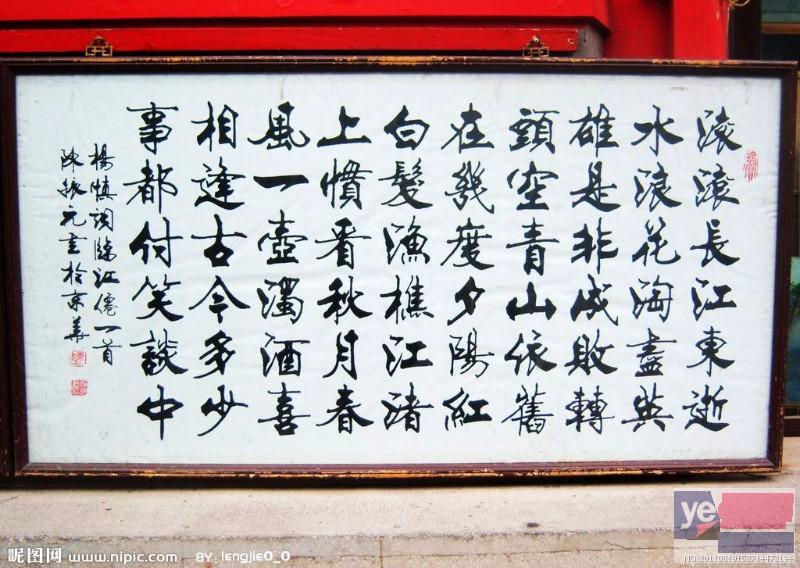 滚滚長江東逝
水浪花淘盡英
雄是非成敗轉
頭空青山依舊
在幾度夕陽紅
白髮漁樵江渚
上慣看秋月春
風一壺濁酒喜
相逢古今多少
事都付笑談中
楊慎詞臨江僊一首
陳振元書於京華
昵图网 www.nipic.com BY: lengjie0_0
ye